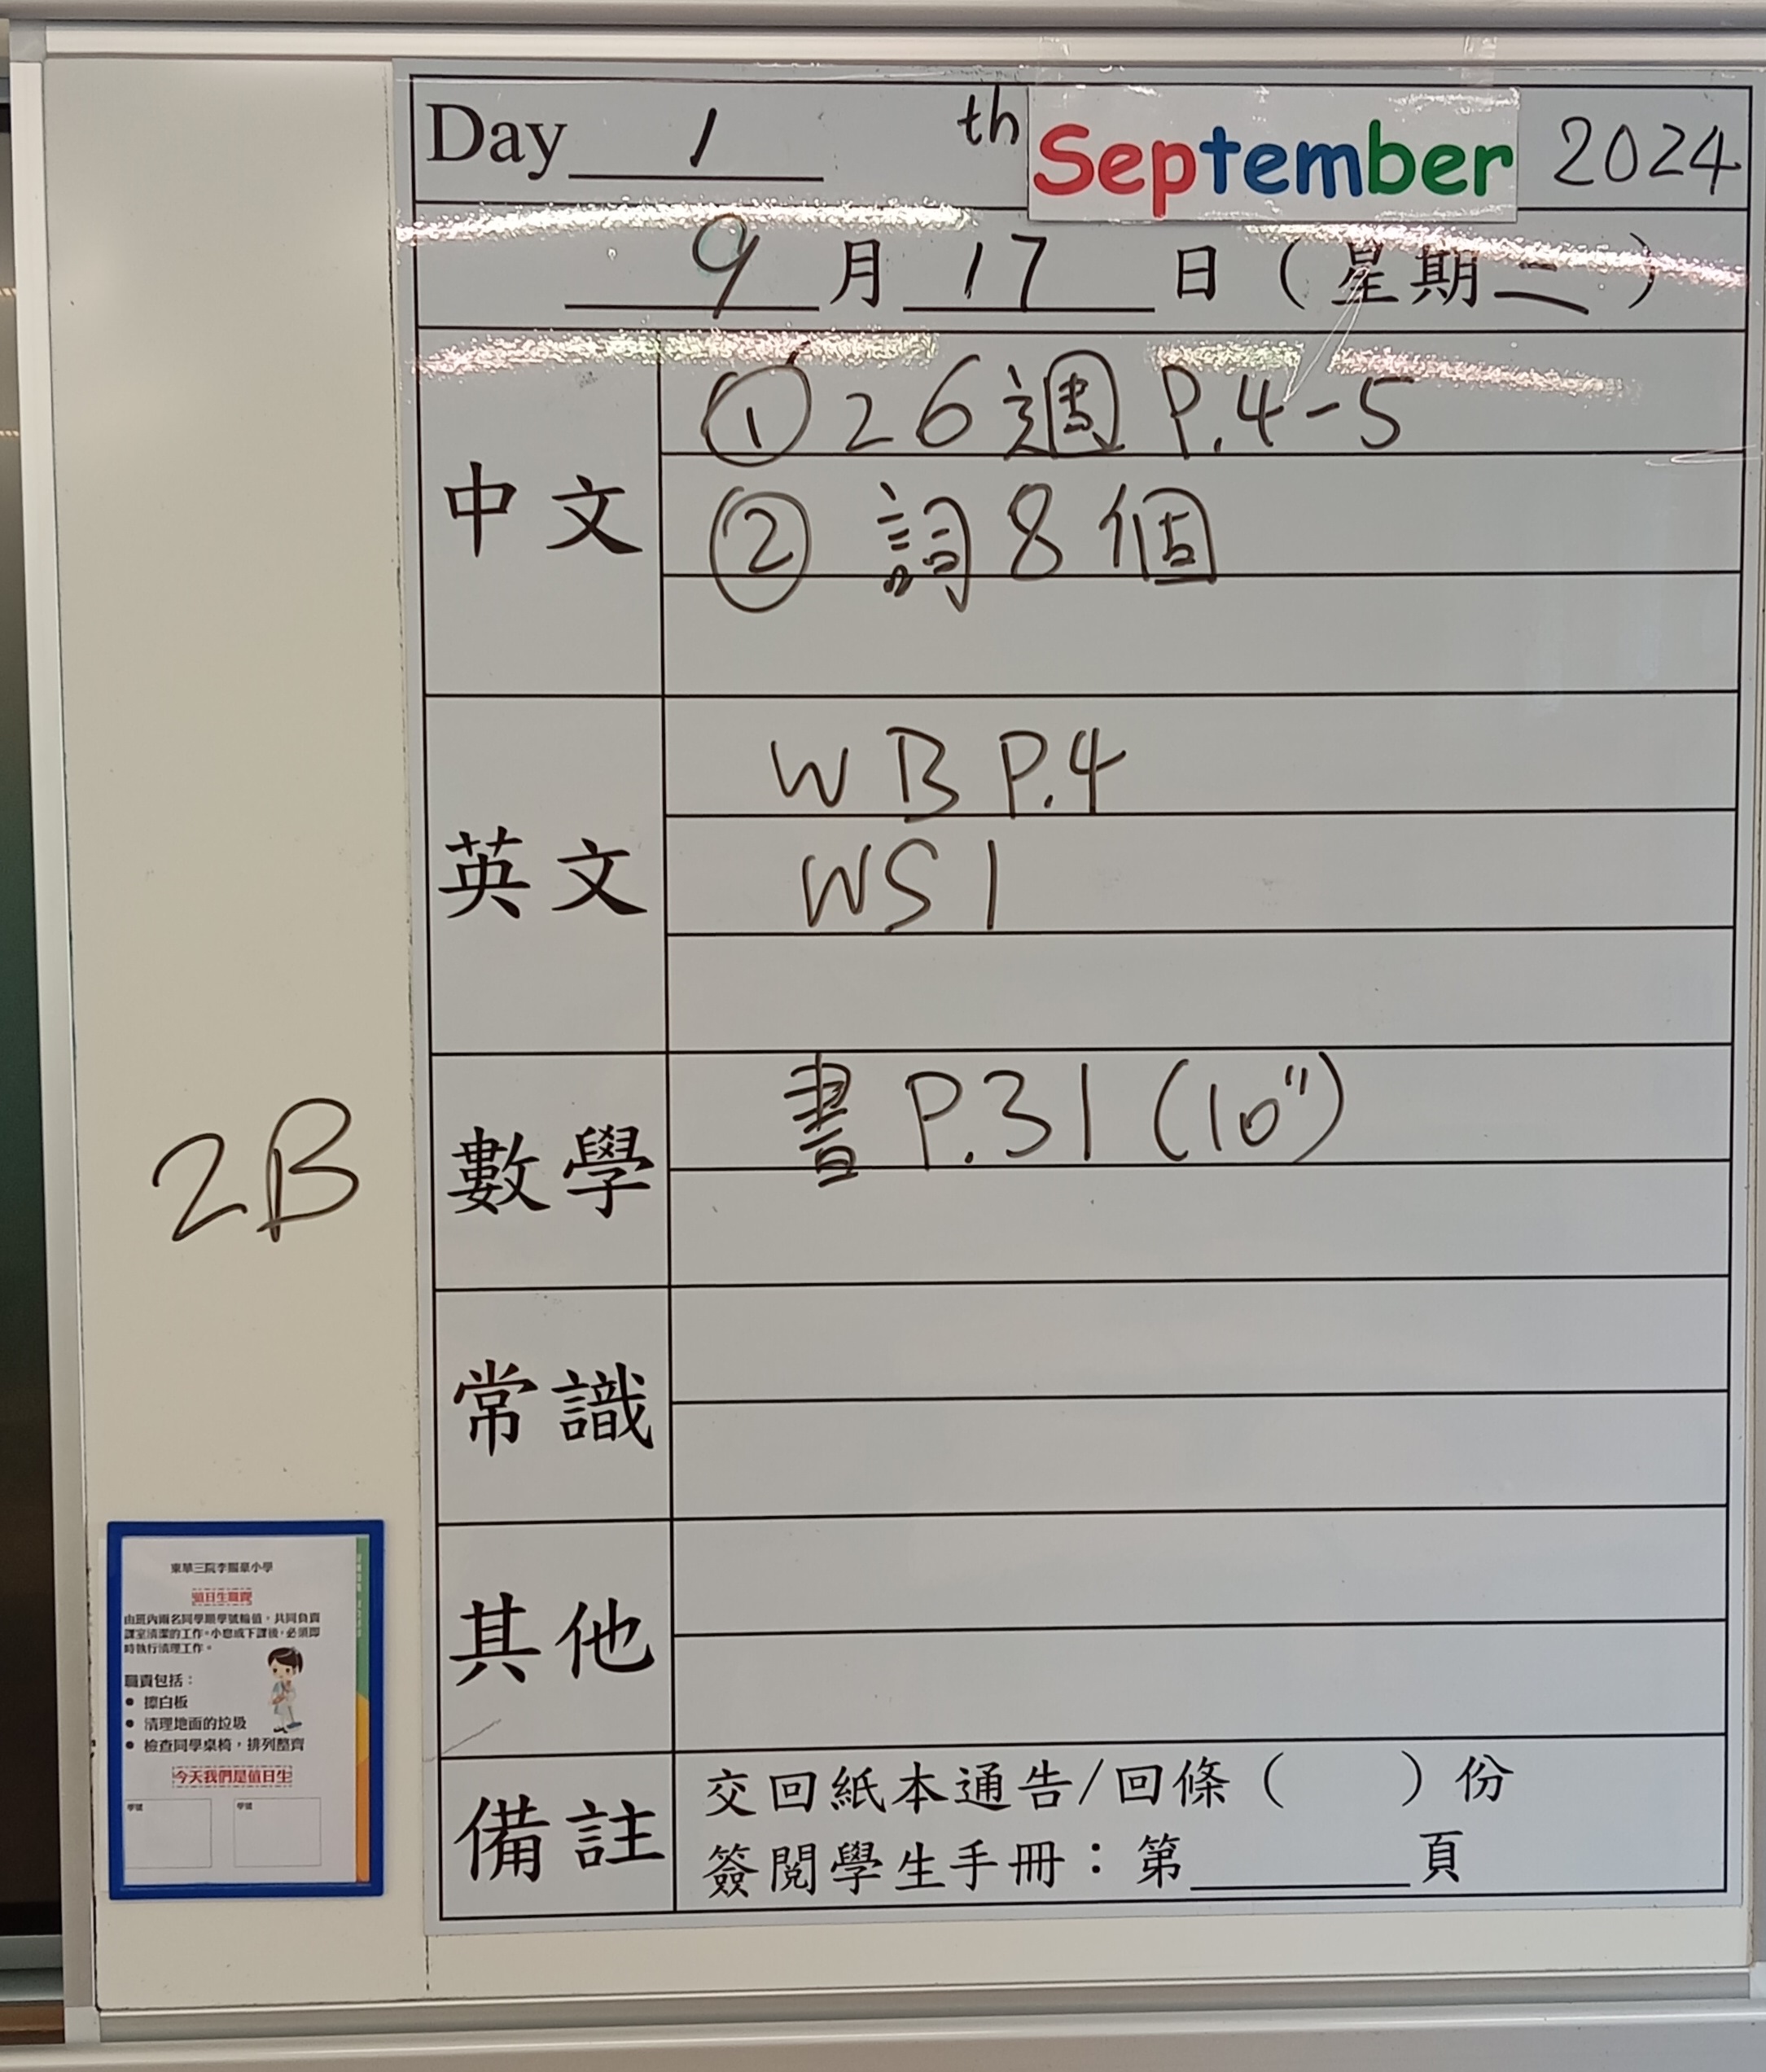 Day 1 th September 2024
9 月 17 日 ( 星期二 )
中文
① 26週 P.4-5
② 詞8個
英文
WB P.4
WS 1
數學
書 P.31 (10")
常識
其他
備註
交回紙本通告/回條 ( ) 份
簽閱學生手冊：第 頁
2B
東華三院李賜豪小學
值日生職責
由班內兩名同學順學號輪值，共同負責
課室清潔的工作。小息或下課後，必須即
時執行清理工作。
職責包括：
● 擦白板
● 清理地面的垃圾
● 檢查同學桌椅，排列整齊
今天我們是值日生
學號 學號